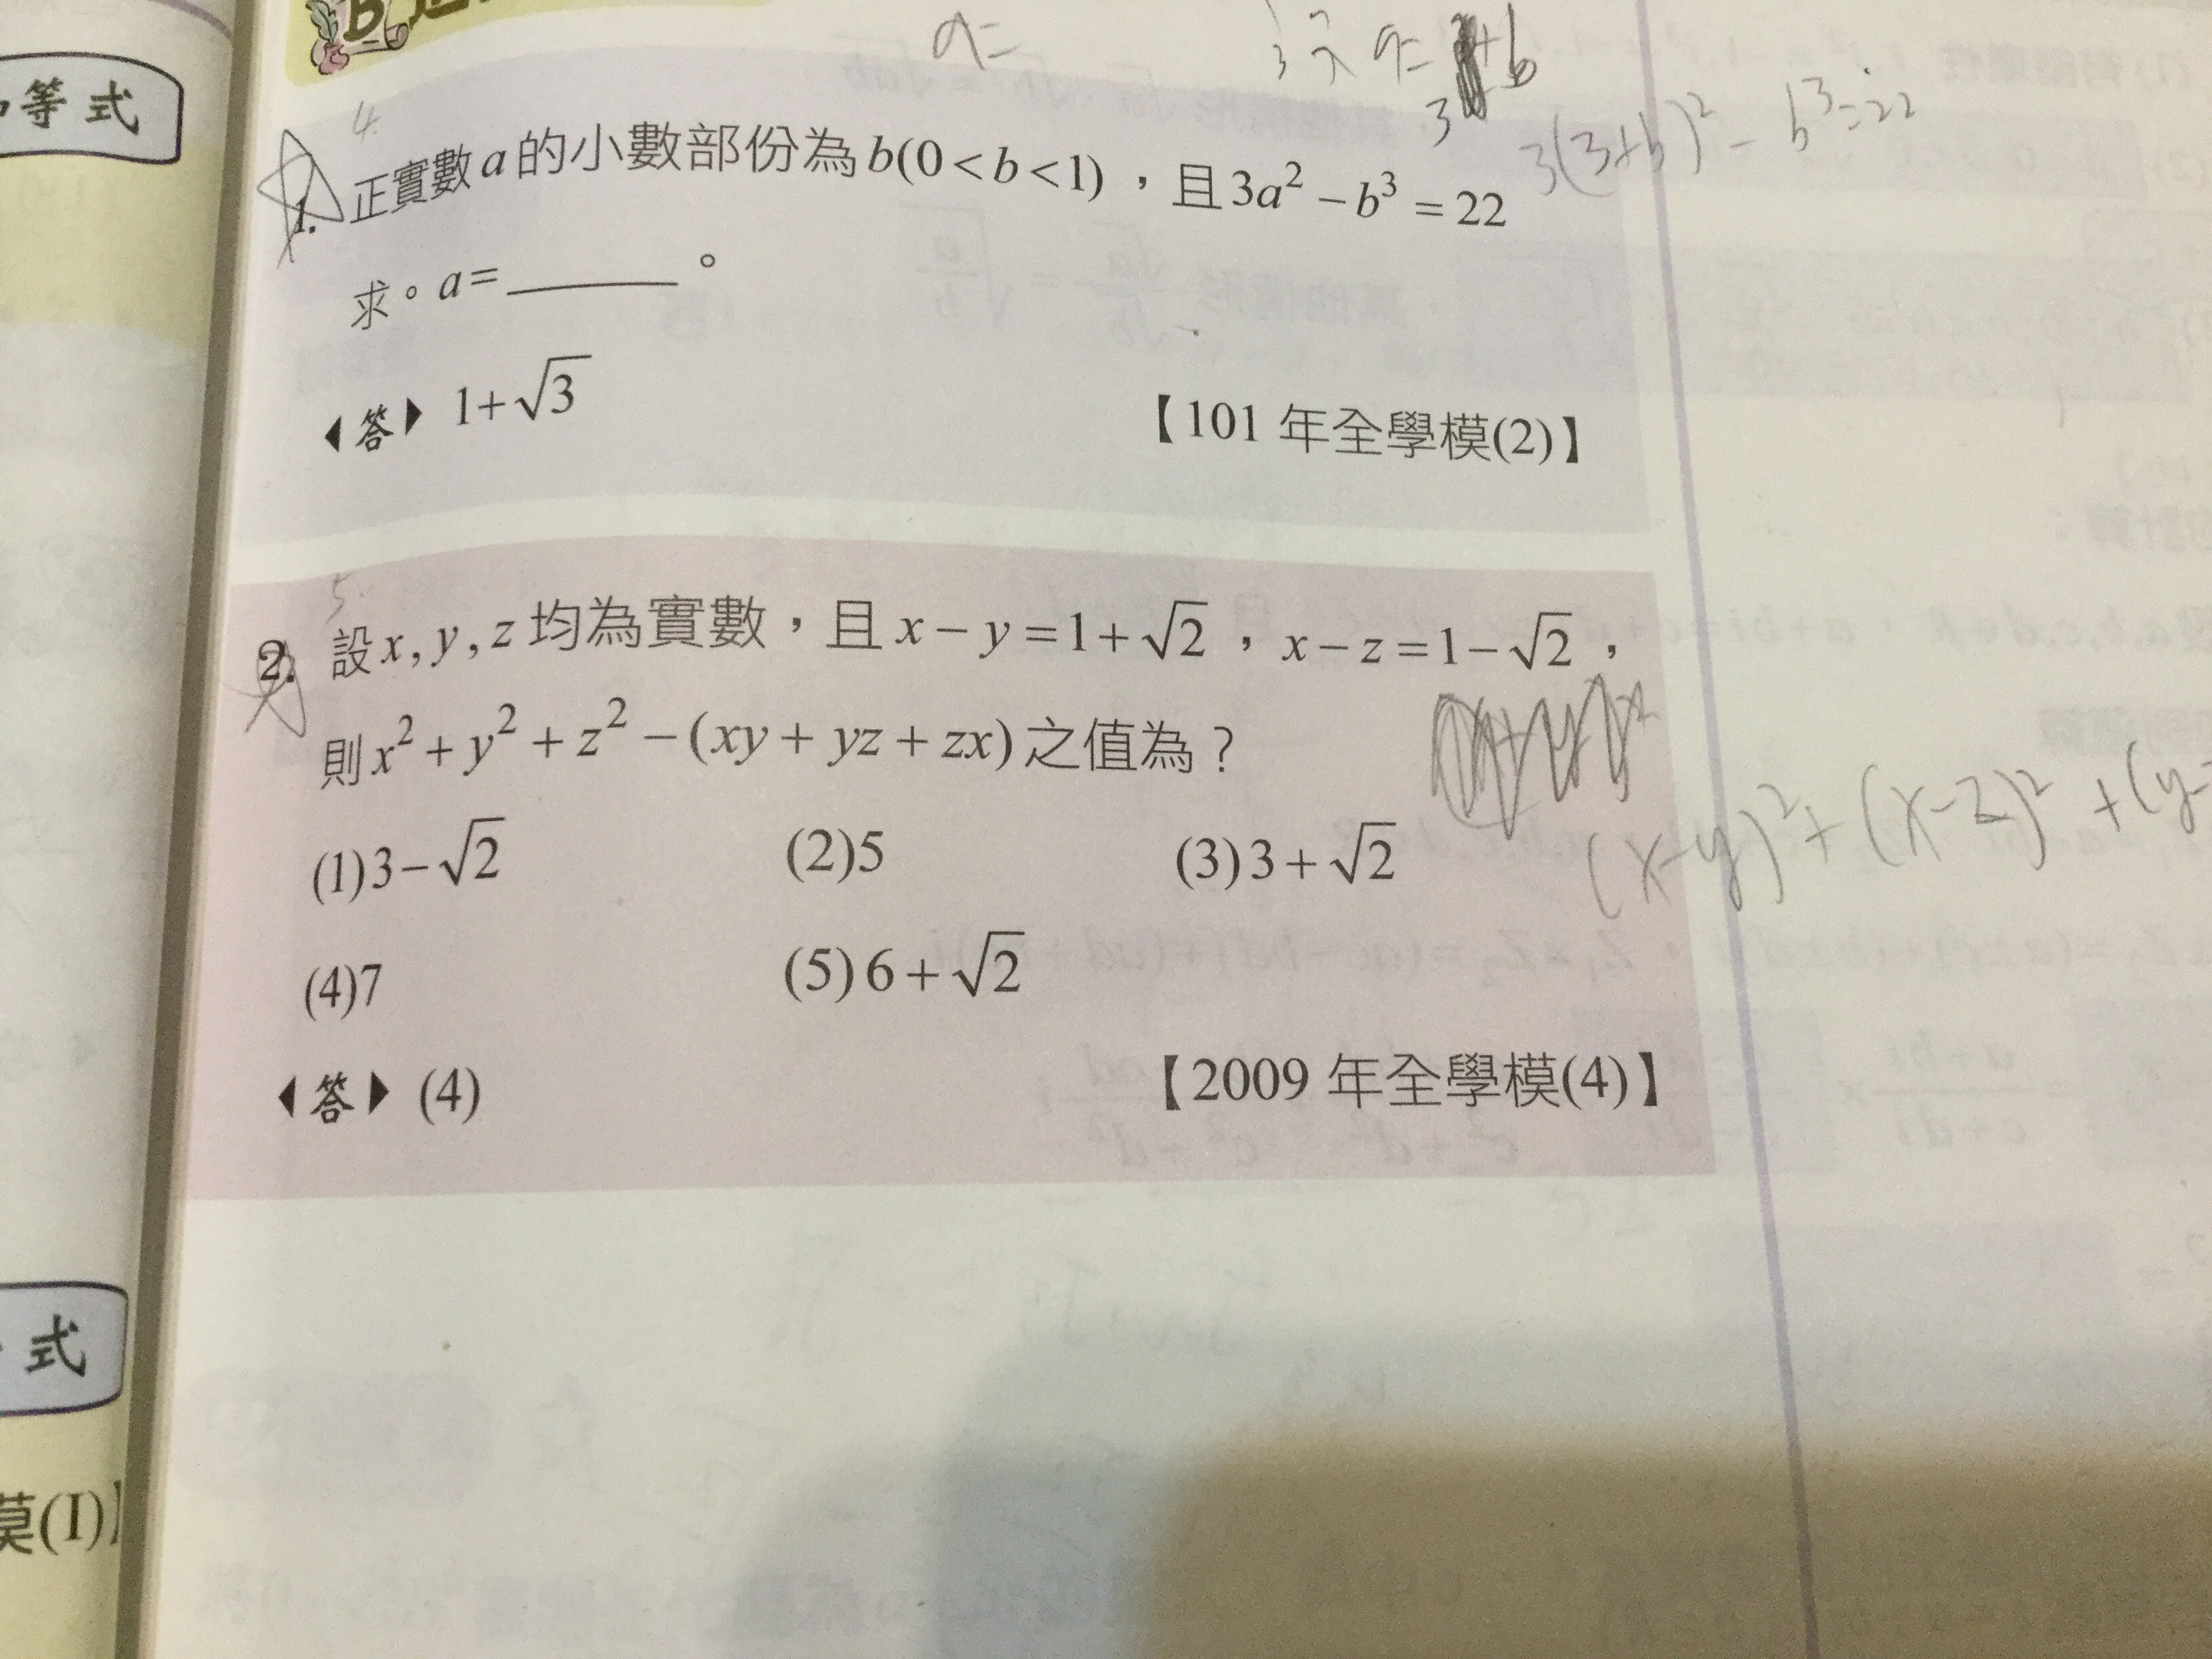 等式
a=
a=
3
+b
3(3+b)² - b³=22
4.
1. 正實數a的小數部份為b(0<b<1)，且3a²-b³=22
求。a=______。
◀答▶ 1+√3
【101 年全學模(2)】
5.
2. 設x,y,z均為實數，且x-y=1+√2，x-z=1-√2，
則x²+y²+z²-(xy+yz+zx)之值為？
(x-y)²+(x-z)²+(y-
(1)3-√2 (2)5 (3)3+√2
(4)7 (5)6+√2
◀答▶ (4)
【2009 年全學模(4)】
式
模(I)】